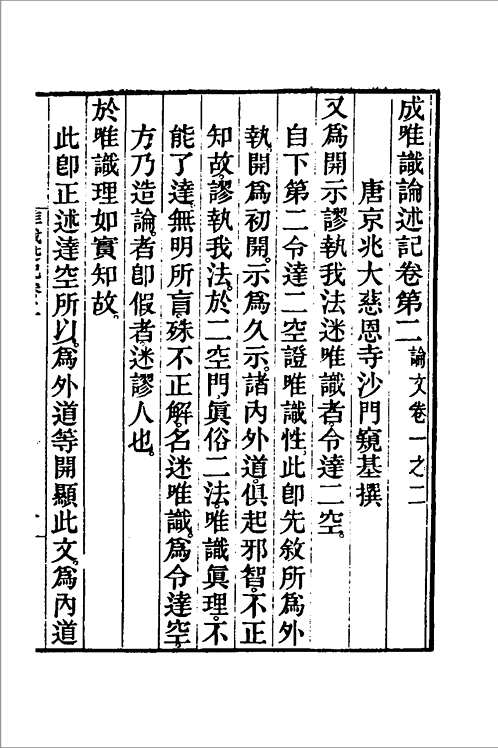 成唯識論述記卷第二 論文卷一之二
唐京兆大慈恩寺沙門窺基撰
又爲開示謬執我法迷唯識者。令達二空。
自下第二令達二空證唯識性。此卽先敘所爲外
執。開爲初開。示爲久示。諸內外道。俱起邪智。不正
知故。謬執我法。於二空門。眞俗二法。唯識眞理。不
能了達。無明所盲。殊不正解。名迷唯識。爲令達空。
方乃造論。者卽假者。迷謬人也。
於唯識理如實知故。
此卽正述達空所以。爲外道等開顯此文。爲內道